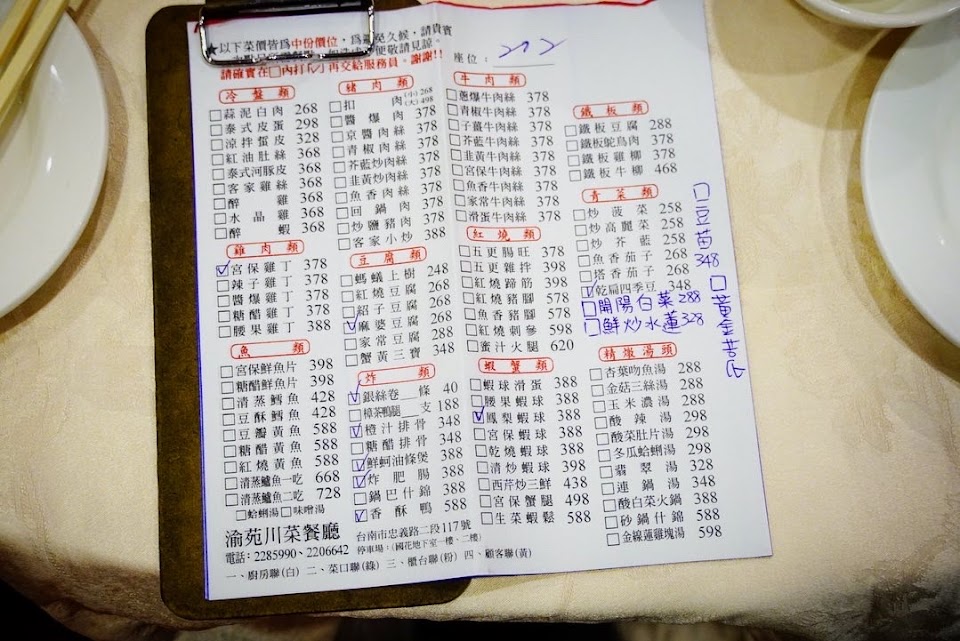 ★以下菜價皆為中份價位，為避免久候，請貴賓
請確實在□內打✓再交給服務員。謝謝!!
座位：
冷盤類
□蒜泥白肉 268
□泰式皮蛋 298
□涼拌蜇皮 328
□紅油肚絲 368
□泰式河豚皮 368
□客家雞絲 368
□醉雞 368
□水晶雞 368
□醉蝦 368
雞肉類
☑宮保雞丁 378
□辣子雞丁 378
□醬爆雞丁 378
□糖醋雞丁 378
□腰果雞丁 388
魚類
□宮保鮮魚片 398
□糖醋鮮魚片 398
□清蒸鱈魚 428
□豆酥鱈魚 428
□豆瓣黃魚 588
□糖醋黃魚 588
□紅燒黃魚 588
□清蒸鱸魚一吃 668
□清蒸鱸魚二吃 728
□蛤蜊湯□味噌湯
豬肉類
□扣肉 (小)268 (大)498
□醬爆肉 378
□京醬肉絲 378
□青椒肉絲 378
□芥藍炒肉絲 378
□韭黃炒肉絲 378
□魚香肉絲 378
□回鍋肉 378
□炒鹽豬肉 378
□客家小炒 388
豆腐類
□螞蟻上樹 248
□紅燒豆腐 268
□紹子豆腐 268
☑麻婆豆腐 268
□家常豆腐 288
□蟹黃三寶 348
炸類
☑銀絲卷__條 40
□樟茶鴨腿__支 188
☑橙汁排骨 348
□糖醋排骨 348
☑鮮蚵油條煲 388
☑炸肥腸 388
□鍋巴什錦 388
☑香酥鴨 588
牛肉類
□蔥爆牛肉絲 378
□青椒牛肉絲 378
□子薑牛肉絲 378
□芥藍牛肉絲 378
□韭黃牛肉絲 378
□宮保牛肉絲 378
□魚香牛肉絲 378
□家常牛肉絲 378
□滑蛋牛肉絲 378
紅燒類
□五更腸旺 378
□五更雜拌 398
□紅燒蹄筋 398
□紅燒豬腳 578
□魚香豬腳 578
□紅燒刺參 598
□蜜汁火腿 620
蝦蟹類
□蝦球滑蛋 388
□腰果蝦球 388
☑鳳梨蝦球 388
□宮保蝦球 388
□乾燒蝦球 388
□清炒蝦球 398
□西芹炒三鮮 438
□宮保蟹腿 498
□生菜蝦鬆 588
鐵板類
□鐵板豆腐 288
□鐵板鴕鳥肉 378
□鐵板雞柳 378
□鐵板牛柳 468
青菜類
□炒菠菜 258
□炒高麗菜 258
□炒芥藍 258
□魚香茄子 268
□塔香茄子 268
☑乾扁四季豆 348
□開陽白菜 288
□鮮炒水蓮 328
□豆苗 348
精燉湯類
□杏葉吻魚湯 288
□金菇三絲湯 288
□玉米濃湯 288
□酸辣湯 298
□酸菜肚片湯 298
□冬瓜蛤蜊湯 298
□翡翠湯 328
□連鍋湯 348
□酸白菜火鍋 388
□砂鍋什錦 588
□金線蓮雞塊湯 598
渝苑川菜餐廳
台南市忠義路二段117號
電話：2285990、2206642
停車場：(國花地下室一樓、二樓)
一、廚房聯(白) 二、菜口聯(綠) 三、櫃台聯(粉) 四、顧客聯(黃)